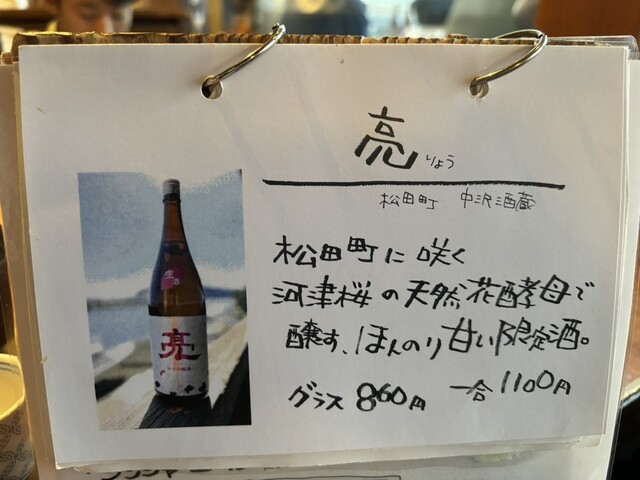 亮 りょう
松田町 中沢酒蔵
松田町に咲く
河津桜の天然花酵母で
醸す、ほんのり甘い限定酒。
グラス 860円 一合 1100円
生酒
亮